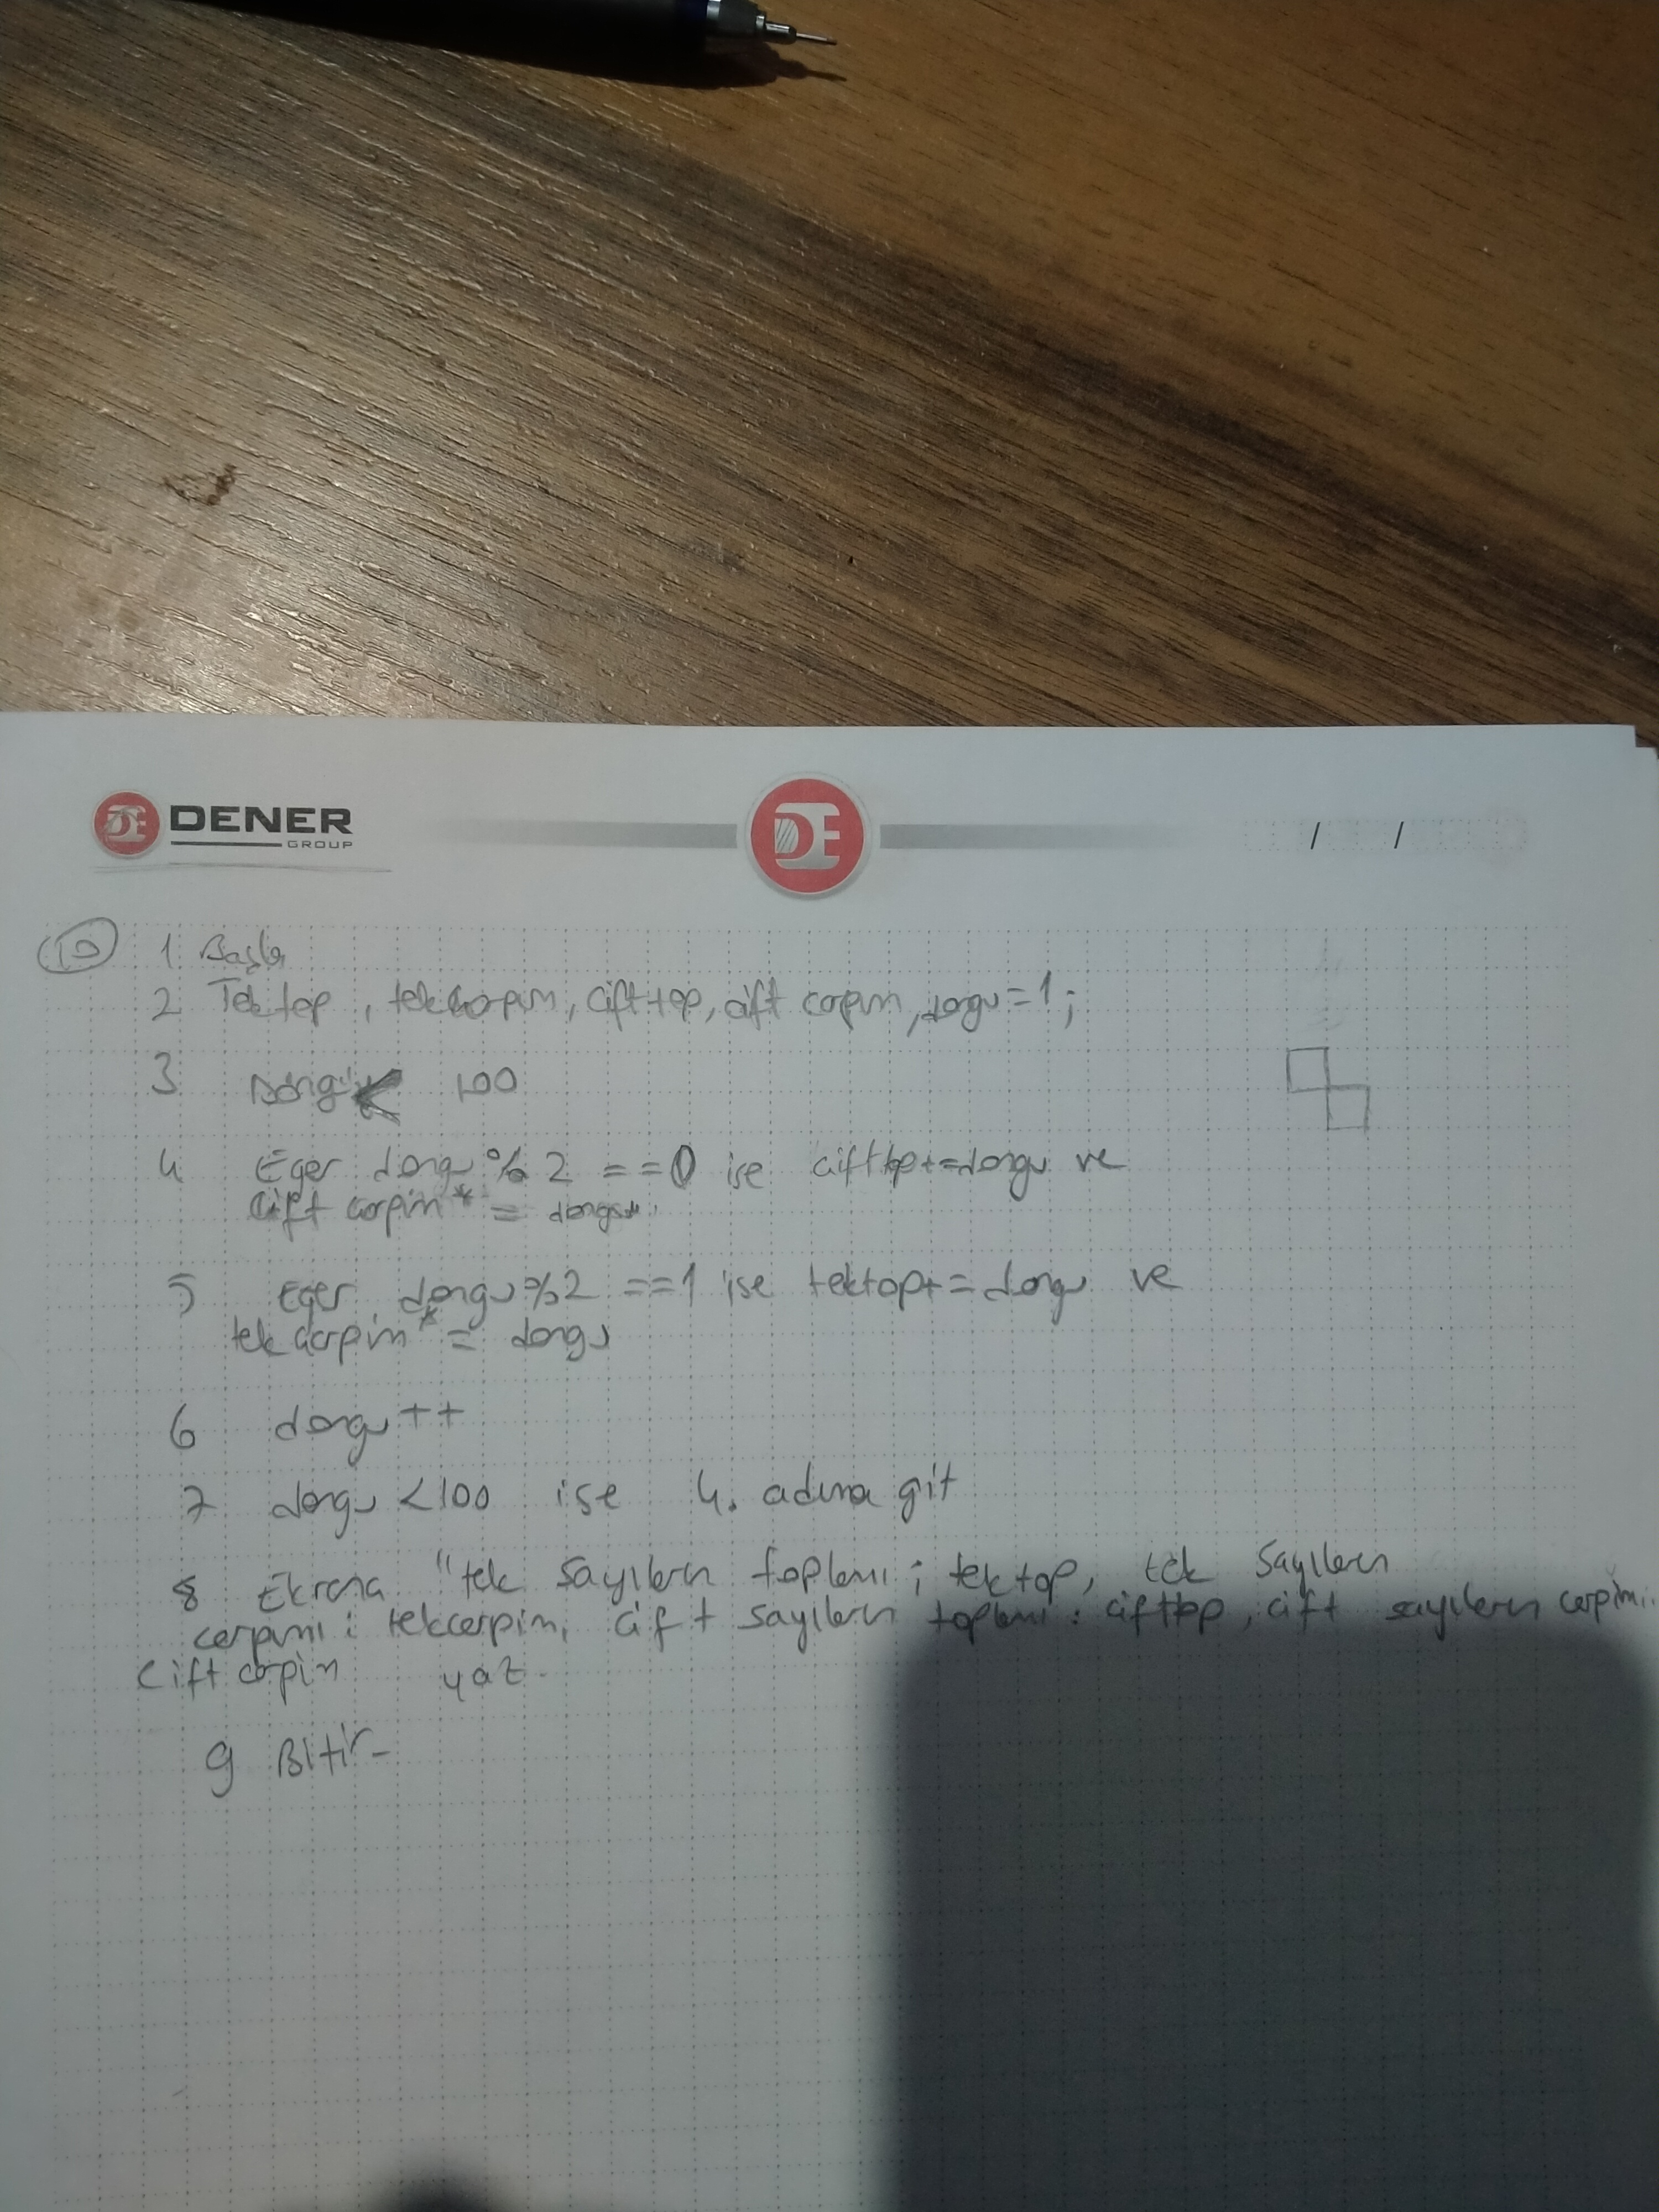 DENER
GROUP
DE
/ /
10 1 Başla
2 Tektop, tekcarpım, cifttop, cift carpım, dongu=1;
3 Döngü< 100
4 Eger dongu % 2 ==0 ise cifttop+=dongu ve
cift carpim*= dongu
5 Eger dongu%2 ==1 ise tektop+= dongu ve
tek carpim*= dongu
6 dongu++
7 dongu <100 ise 4. adıma git
8 Ekrana "tek sayıların toplamı; tektop, tek sayıların
carpımı: tekcarpim, cift sayıların toplamı: cifttop, cift sayıların carpimi:
Cift carpin yaz.
9 Bitir